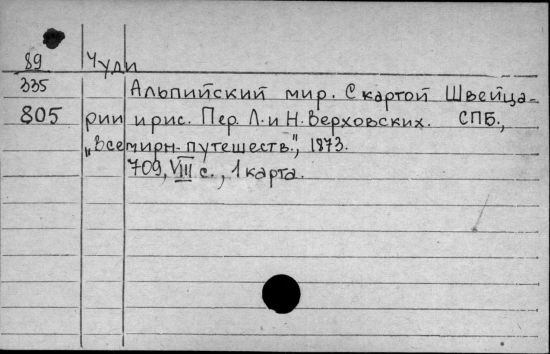 89 Чуди
335 Альпийский мир. С картой Швейца-
805 рии и рис. Пер. Л. и Н. Верховских. СПБ.,
„Всемирн. путешеств.", 1873.
709, VIII с., 1 карта.